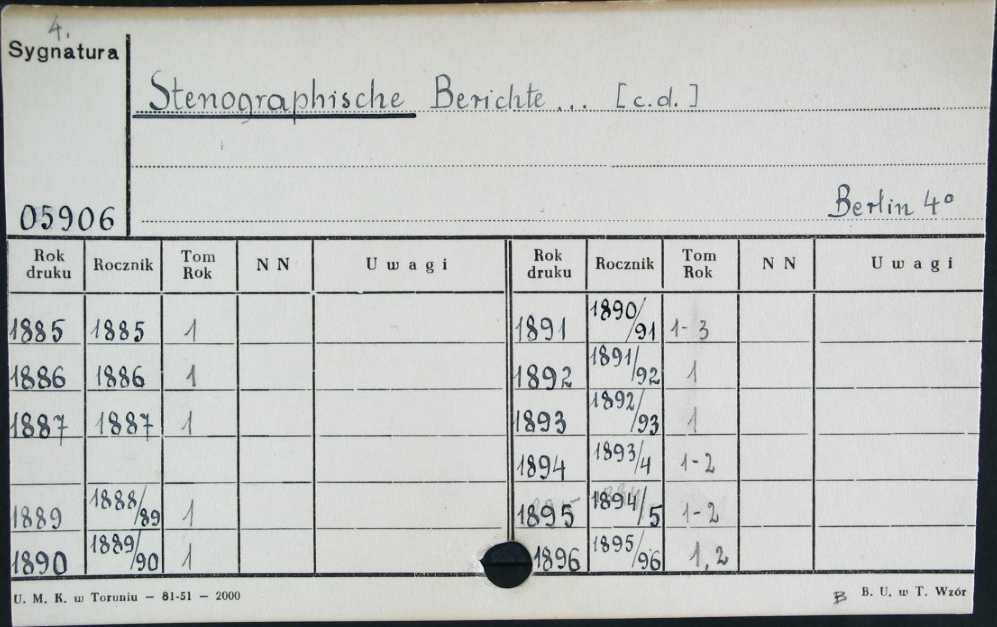 4.
Sygnatura
Stenographische Berichte... [c.d.]
05906
Berlin 4°
Rok druku Rocznik Tom Rok NN Uwagi Rok druku Rocznik Tom Rok NN Uwagi
1885 1885 1 1891 1890/91 1-3
1886 1886 1 1892 1891/92 1
1887 1887 1 1893 1892/93 1
1894 1893/4 1-2
1889 1888/89 1 1895 1894/5 1-2
1890 1889/90 1 1896 1895/96 1,2
U. M. K. w Toruniu — 81-51 — 2000 B B. U. w T. Wzór